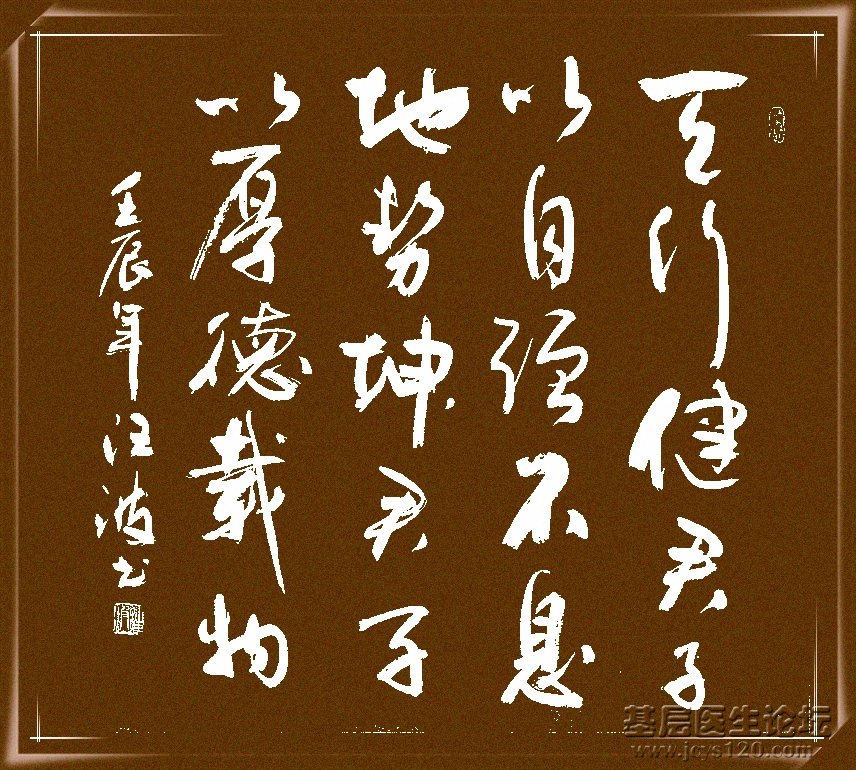 天行健君子
以自强不息
地势坤君子
以厚德载物
壬辰年汪波书
基层医生论坛
www.jcys120.com